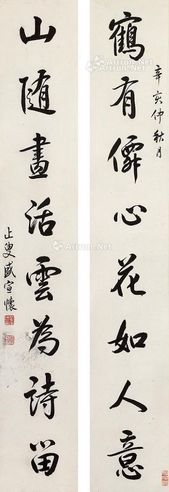 辛亥仲秋月
鶴有僊心花如人意
山随畫活雲為詩留
止叟盛宣懷